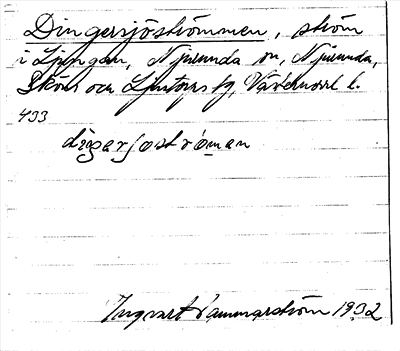 Dingersjöströmmen, ström
i Ljungan, Njurunda sn, Njurunda,
Sköns och Ljustorps tg, Västernorrl l.
433
Ingvart Hammarström 1932